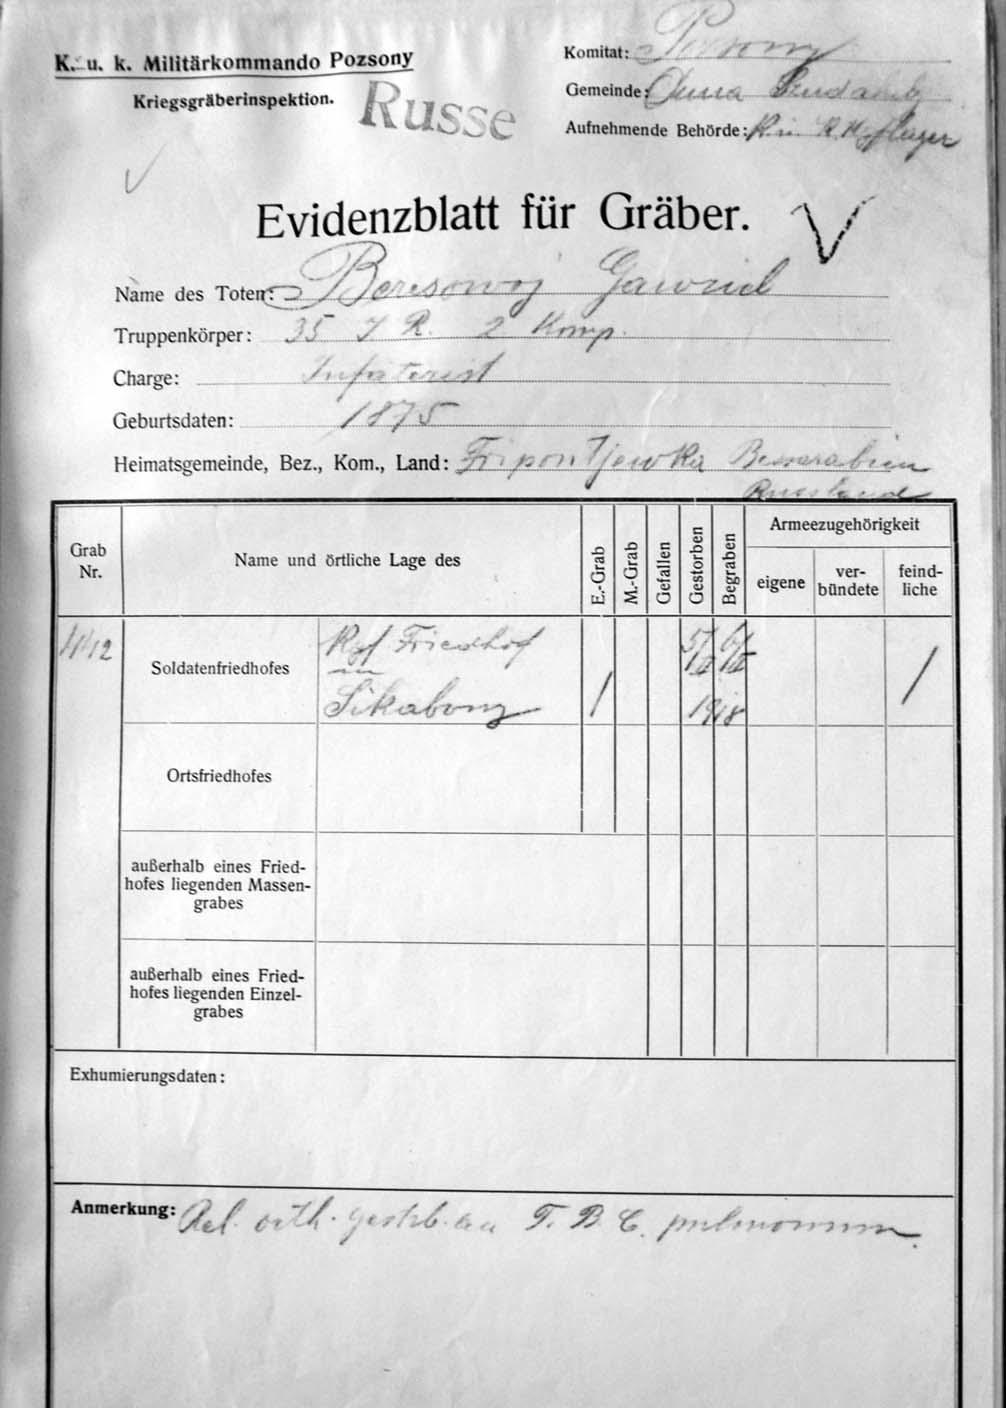 K. u. k. Militärkommando Pozsony
Kriegsgräberinspektion.
Russe
Komitat: Pozsony
Gemeinde: Duna
Aufnehmende Behörde:
Evidenzblatt für Gräber.
Name des Toten: Beresowoj Gawriel
Truppenkörper: 35 J R. 2 Komp.
Charge: Infaterist
Geburtsdaten: 1875
Heimatsgemeinde, Bez., Kom., Land: Bessarabien
Russland
Grab Nr.
Name und örtliche Lage des
E.-Grab
M.-Grab
Gefallen
Gestorben
Begraben
Armeezugehörigkeit
eigene
ver-
bündete
feind-
liche
Soldatenfriedhofes
Kgf Friedhof
in
Sikabony
/
5/III
6/III
1918
/
Ortsfriedhofes
außerhalb eines Fried-
hofes liegenden Massen-
grabes
außerhalb eines Fried-
hofes liegenden Einzel-
grabes
Exhumierungsdaten:
Anmerkung: Rel. orth. gestorb. an T. B. C. pulmonum.